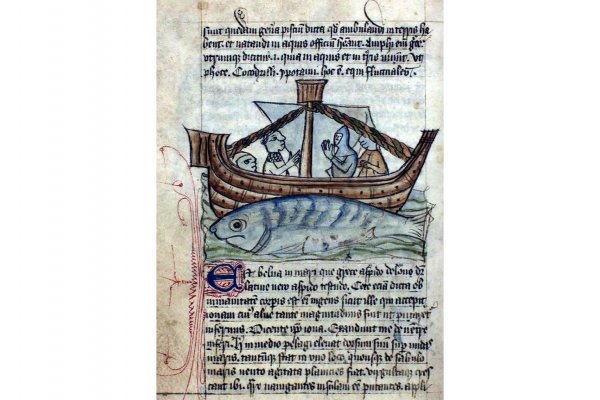 sunt quedam gen̄a pisciū dicta qđ ambulandi in terris ha
bent. et natandi in aquis officiū hn̄t. Amphi em̄
dicitur .i. quia in aquis et in t̄ris uiuūt. Vt
phoce. Cocodrilli. ypotami. hoc ē equi fluctuales.
Est belua in mari que grece aspido delone dr̄
latine uero aspido testudo. Cete eciā dicta ob
inmanitatem corpis est em̄ ingens sicut ille qui accepit
ionam cuiꝰ alue tante magnitudinis fuit ut putaret
infernus. Dicente ip̄o iona. Exaudiuit me de uentre
inferi. in medio pelagi eleuat dorsum suū sup̄ undas
maris. stat in uno loco. quousque de sabulo
maris uento agitata planicies fiat. cres
cant ibi. Qr̄e nauigantes insulam eē putantes. appli